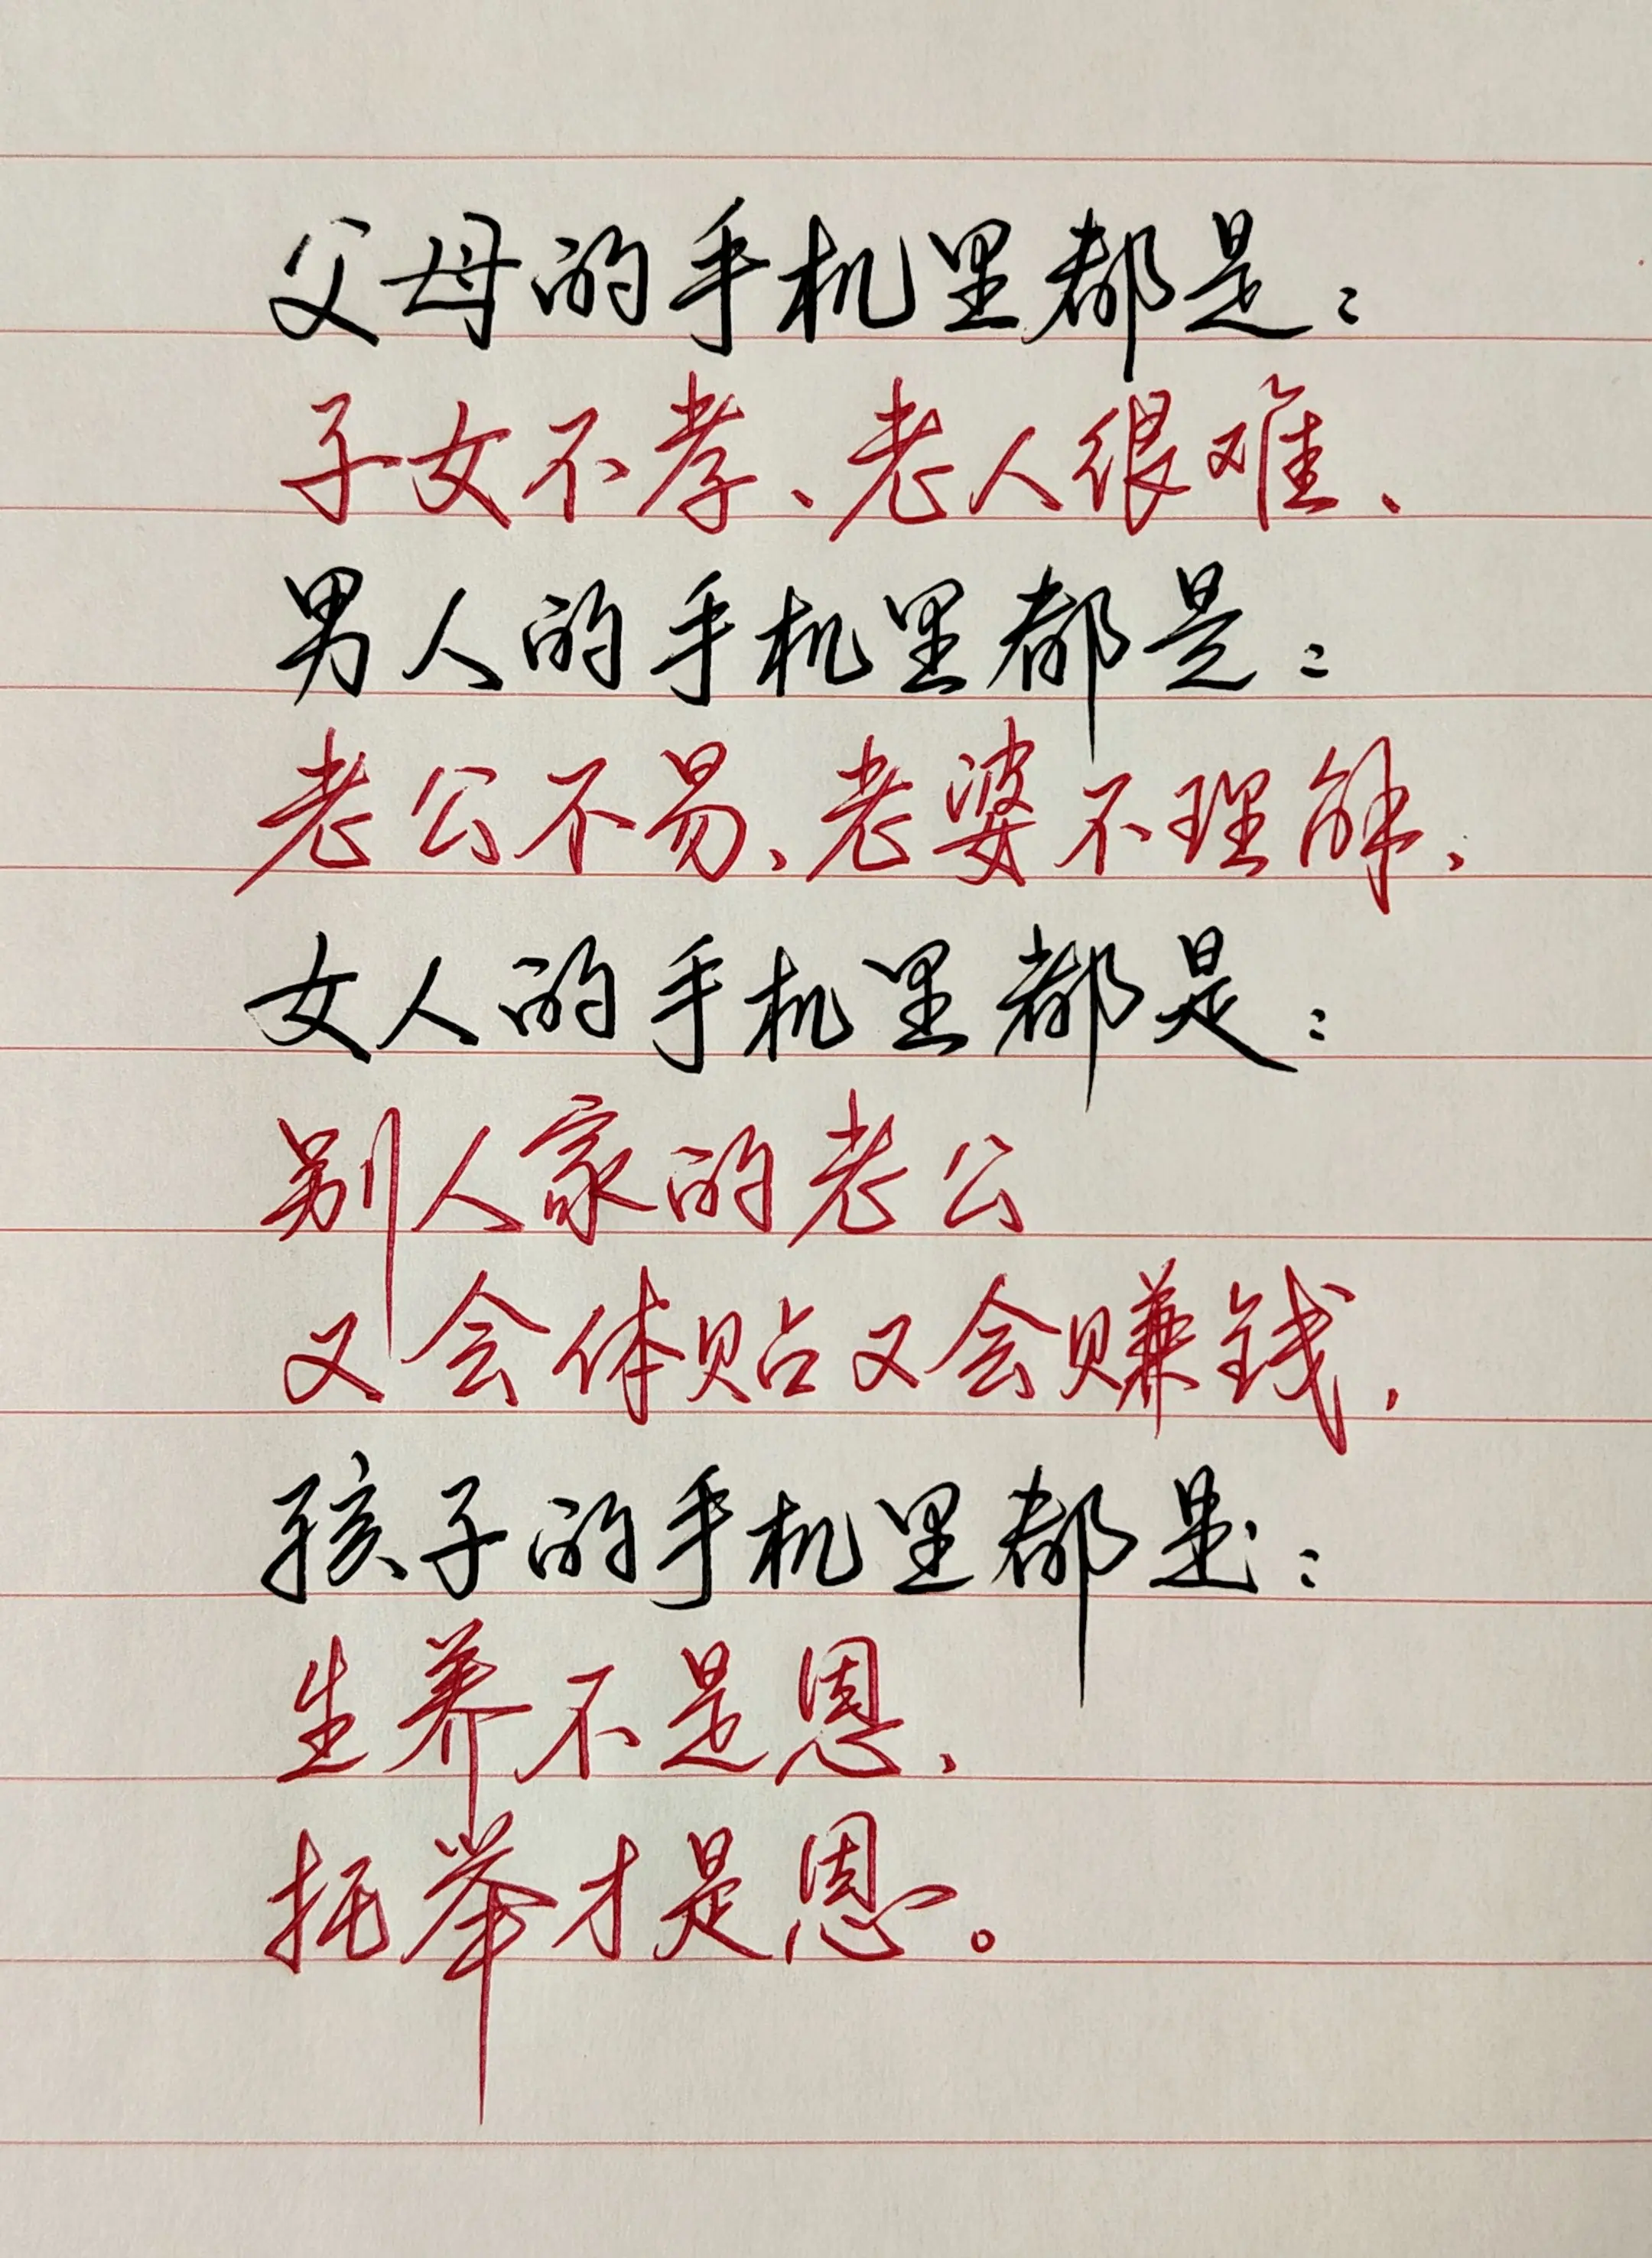 父母的手机里都是：
子女不孝、老人很难、
男人的手机里都是：
老公不易、老婆不理解、
女人的手机里都是：
别人家的老公
又会体贴又会赚钱，
孩子的手机里都是：
生养不是恩、
托举才是恩。